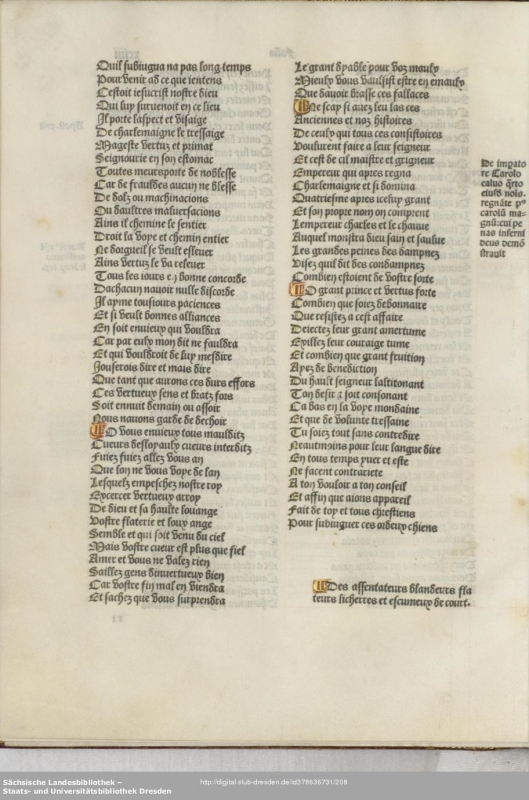 Quil subiugua na pas long temps
Pour venir ad ce que ientens
Cestoit iesucrist nostre dieu
Qui luy suruenoit en ce lieu
Il porte laspect et visaige
De charlemaigne le tressaige
Mageste vertuz et primat
Seignourie en son estomac
Toutes meurs porte de noblesse
Car de fraudes aucun ne blesse
De dolz ou machinacions
Ou daultres maluersacions
Ains il chemine le sentier
Droit la voye et chemin entier
Ne dorgueil se veult esleuer
Ains vertuz le va releuer
Tous les iours en bonne concorde
Dachacun nauoit nulle discorde
Il ayme tousiours paciences
Et si veult bonnes alliances
En soit enuieux qui vouldra
Car par eulx mon dit ne fauldra
Et qui vouldroit de luy mesdire
Iouserois dire et mais dire
Que tant que aurons ces durs effors
Ces vertueux sens et bratz fors
Soit ennuit demain ou assoir
Nous nauons garde de dechoir
O vous enuieux tous maulditz
Cueurs desloyaulx cueurs interditz
Fuiez fuiez allez vous an
Que lon ne vous voye de lan
Lesquelz empeschez nostre roy
Exercer vertueux arroy
De dieu et sa haulte louange
Vostre flaterie et loux ange
Semble et qui soit venu du ciel
Mais vostre cueur est plus que fiel
Amer et vous ne valez rien
Saillez gens dinuertueux bien
Car vostre fin mal en viendra
Et sachez que vous surprendra
Le grant dyable pour voz maulx
Mieulx vous vaulsist estre en emaulx
Que dauoir brasse ces fallaces
Ne scay si auez leu las ces
Anciennes et noz histoires
De ceulx qui tous ces consistoires
Voulurent faire a leur seigneur
Et cest de cil maistre et grigneur
Empereur qui apres regna
Charlemaigne et si domina
Quatriesme apres iceluy grant
Et son propre nom on comprent
Lempereur charles et le chauue
Auquel monstra dieu sain et saulue
Les grandes peines des dampnez
Visez quil dit des condampnez
Combien estoient de vostre sorte
O grant prince et vertus forte
Combien que soiez debonnaire
Que resistez a cest affaire
Deiectez leur grant amertume
Exillez leur couraige tume
Et combien que grant fruition
Ayez de benediction
Du hault seigneur laltitonant
Ton desir z soit consonant
Ca bas en la voye mondaine
Et que de volunte tressaine
Tu soiez tout sans contredire
Neautmoins pour leur langue dire
En tous temps yuer et este
Ne facent contrariete
A ton vouloir a ton conseil
Et affin que aions appareil
Fait de toy et tous chrestiens
Pour subiuguer ces ordeux chiens
De impato
re Carolo
caluo qrto
eiusd nois.
regnãte pº
carolũ ma-
gnũ:cui pe
nas inferni
deus demõ
strauit
Des assentateurs blandeurs fla
teurs licherres et escumeux de court.
Sächsische Landesbibliothek –
Staats- und Universitätsbibliothek Dresden
http://digital.slub-dresden.de/id378636731/208